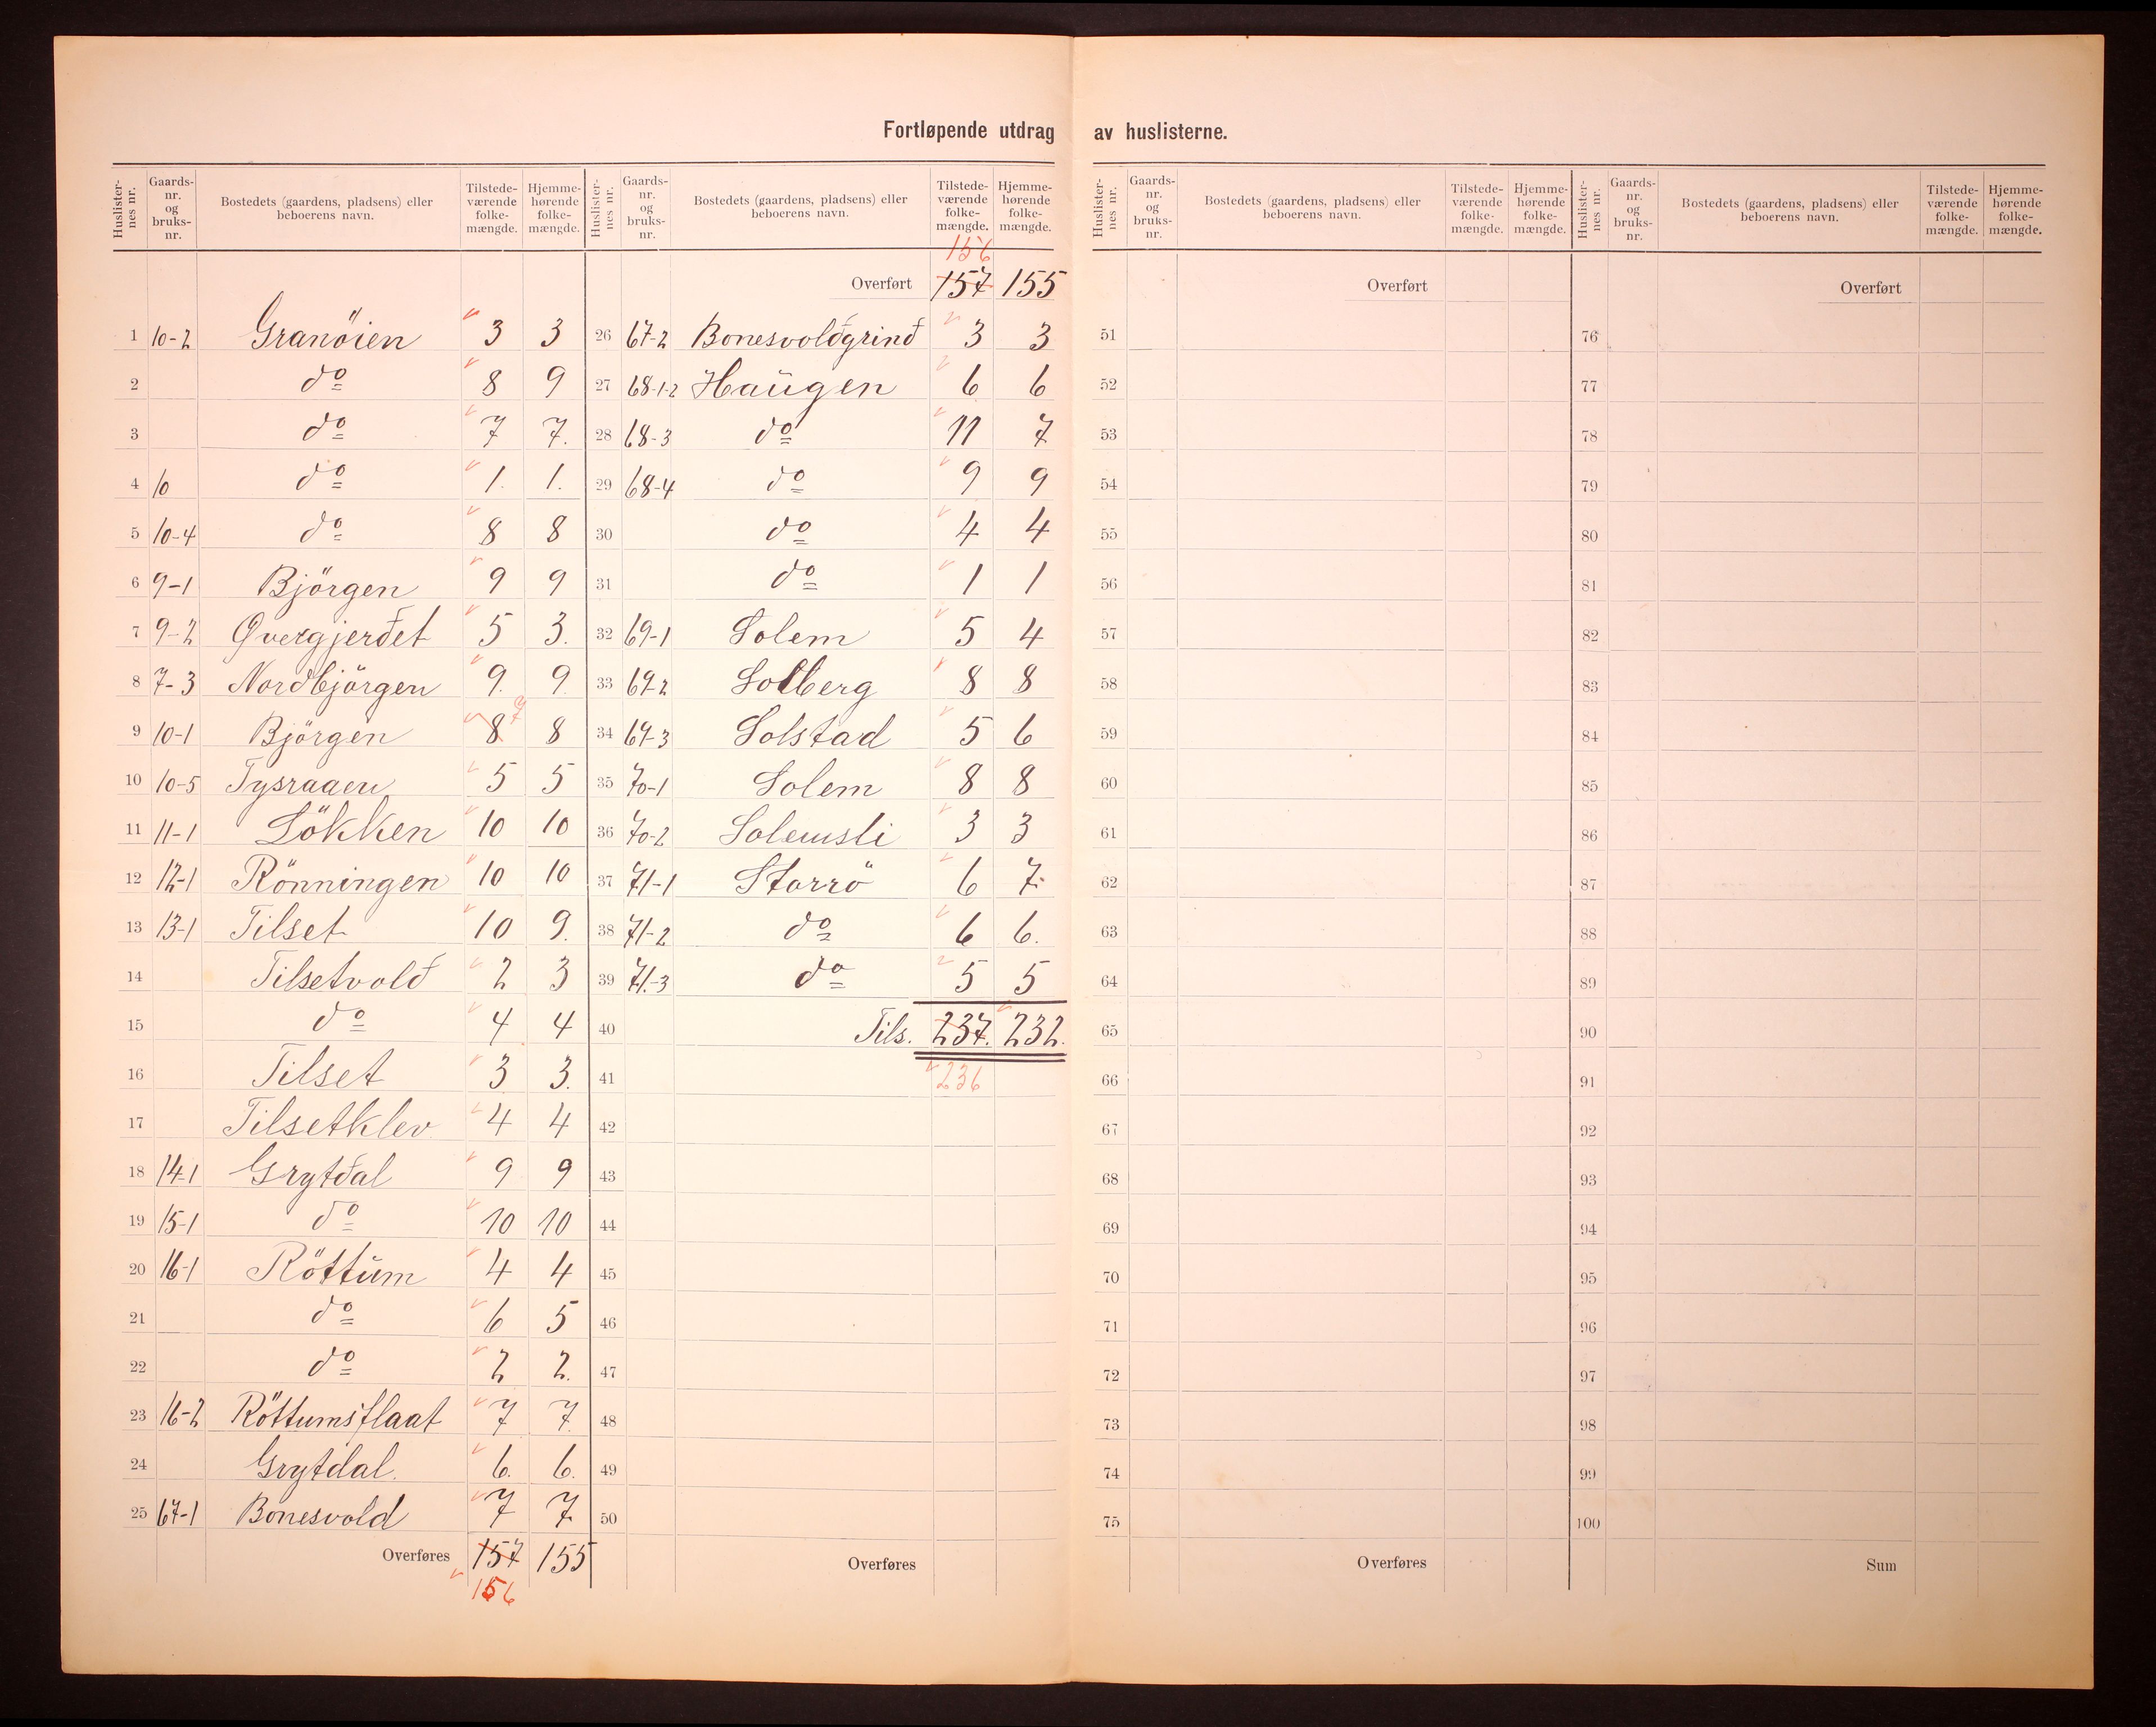 Fortløpende utdrag av huslisterne.
Huslister-nes nr. Gaards-nr. og bruks-nr. Bostedets (gaardens, pladsens) eller beboerens navn. Tilstede-værende folke-mængde. Hjemme-hørende folke-mængde.
1 10-2 Granöien 3 3
2 do 8 9
3 do 7 7.
4 10 do 1. 1.
5 10-4 do 8 8
6 9-1 Björgen 9 9
7 9-2 Qvergjerdet 5 3.
8 7-3 Nordbjörgen 9. 9
9 10-1 Björgen 8 7 8
10 10-5 Tysraaen 5 5
11 11-1 Lökken 10 10
12 12-1 Rönningen 10 10
13 13-1 Tilset 10 9.
14 Tilsetvold 2 3
15 do 4 4
16 Tilset 3 3.
17 Tilsetklev 4 4
18 14-1 Grytdal 9 9
19 15-1 do 10 10
20 16-1 Röttum 4 4
21 do 6 5
22 do 2 2.
23 16-2 Röttumsflaat 7 7.
24 Grytdal. 6. 6.
25 67-1 Bonesvold 7 7
Overføres 157 155
156
Huslister-nes nr. Gaards-nr. og bruks-nr. Bostedets (gaardens, pladsens) eller beboerens navn. Tilstede-værende folke-mængde. Hjemme-hørende folke-mængde.
156
Overført 157 155
26 67-2 Bonesvoldgrind 3 3
27 68-1-2 Haugen 6 6
28 68-3 do 11 7
29 68-4 do 9 9
30 do 4 4
31 do 1 1
32 69-1 Solem 5 4
33 69-2 Solberg 8 8
34 69-3 Solstad 5 6
35 70-1 Solem 8 8
36 70-2 Solemsli 3 3
37 71-1 Storrö 6 7.
38 71-2 do 6 6.
39 71-3 do 5 5
40 Tils. 237. 232.
41 236
42
43
44
45
46
47
48
49
50
Overføres
Huslister-nes nr. Gaards-nr. og bruks-nr. Bostedets (gaardens, pladsens) eller beboerens navn. Tilstede-værende folke-mængde. Hjemme-hørende folke-mængde.
Overført
51
52
53
54
55
56
57
58
59
60
61
62
63
64
65
66
67
68
69
70
71
72
73
74
75
Overføres
Huslister-nes nr. Gaards-nr. og bruks-nr. Bostedets (gaardens, pladsens) eller beboerens navn. Tilstede-værende folke-mængde. Hjemme-hørende folke-mængde.
Overført
76
77
78
79
80
81
82
83
84
85
86
87
88
89
90
91
92
93
94
95
96
97
98
99
100
Sum